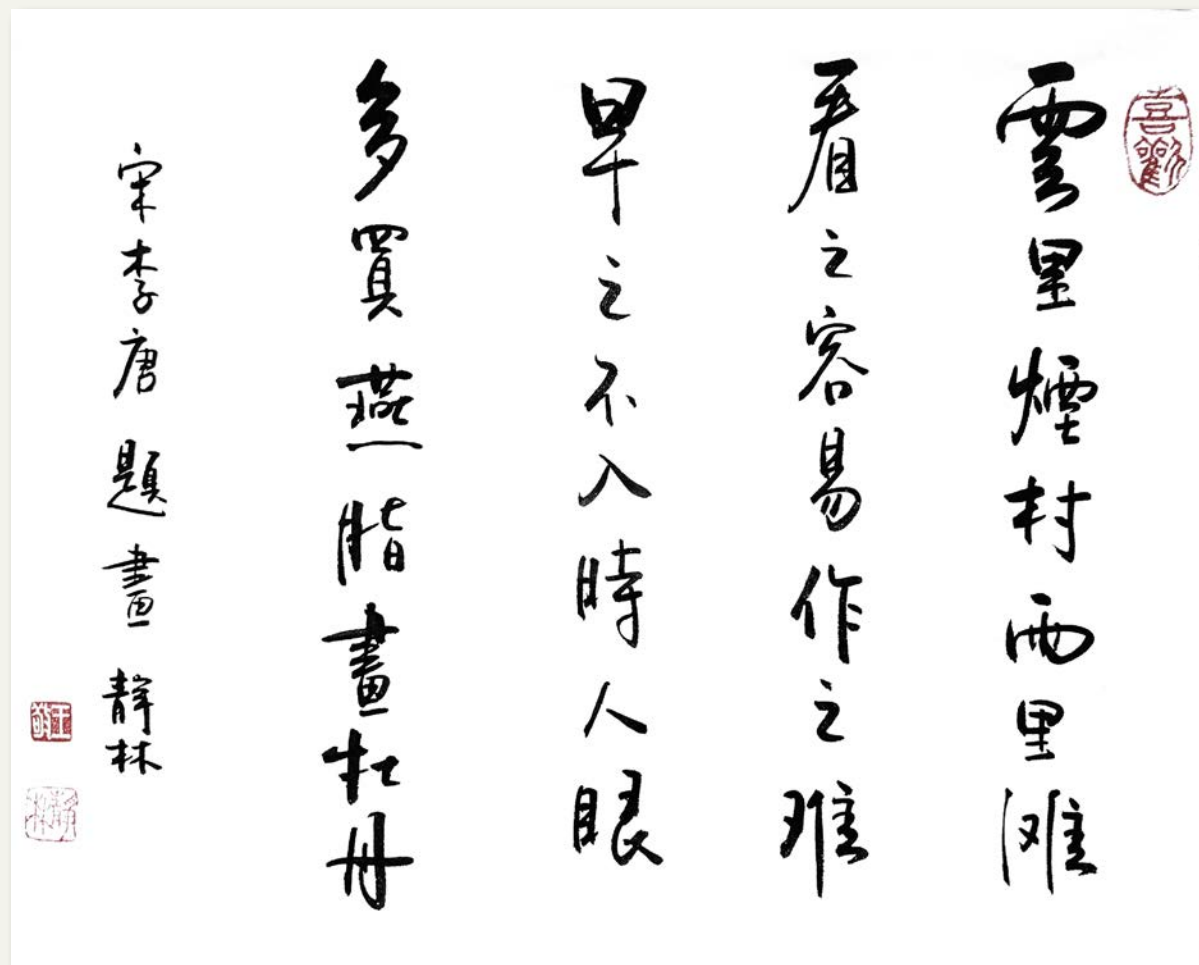 喜歡
雲里煙村雨里滩
看之容易作之难
早之不入時人眼
多買燕脂畫牡丹
宋李唐題畫 靜林
靜林